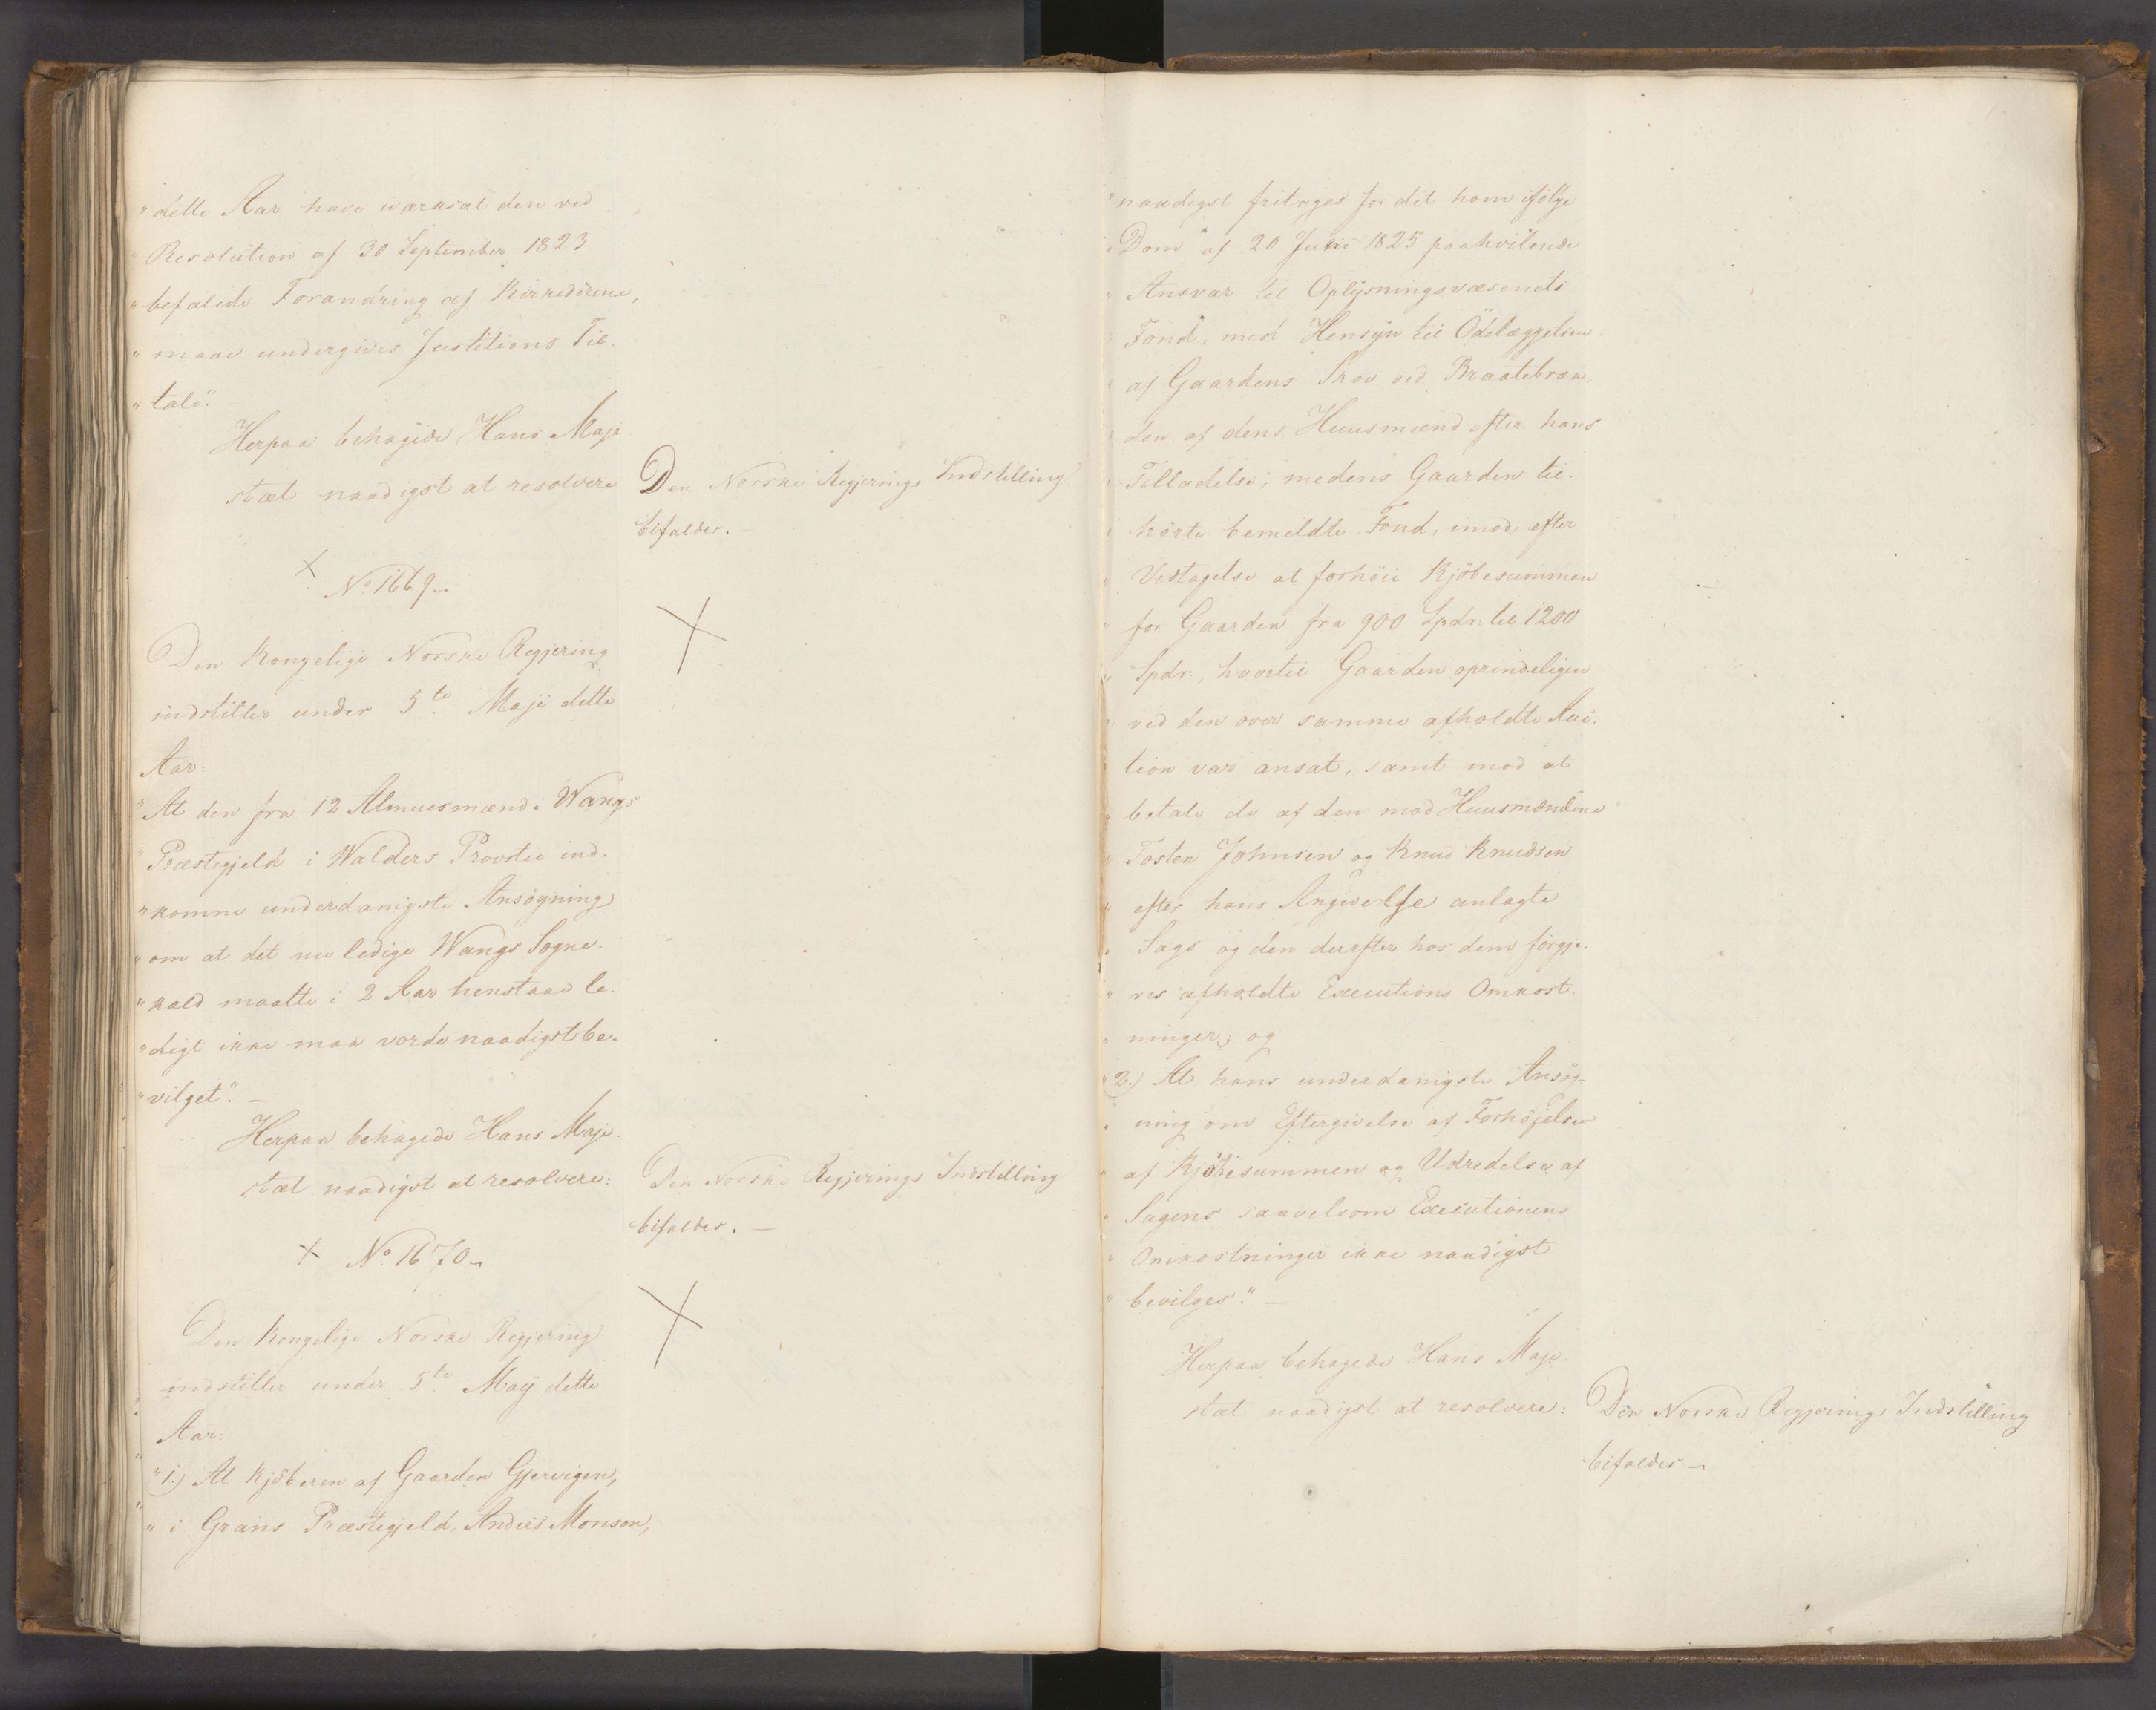 "dette Aar have iværksat den ved
"Resolution af 30 September 1823
"befalede Forandring af Kirkedörene,
"maae undergives Justitiens Til-
"tale."
Herpaa behagede Hans Maje
stæt naadigst at resolvere
Den Norske Regjerings Indstilling
bifaldes. —
× No 1669.
Den Kongelige Norske Regjering
indstiller under 5te Maji dette
Aar.
"At den fra 12 Almuesmænd i Wangs
"Præstegjeld i Walders Provstie ind-
"komne underdanigste Ansögning
"om at det nu ledige Wangs Sogne-
"kald maatte i 2 Aar henstaae le-
"digt ikke maa vorde naadigst be-
"vilget." —
Herpaa behagede Hans Maje-
stæt naadigst at resolvere:
Den Norske Regjerings Indstilling
bifaldes. —
× No 1670.
Den Kongelige Norske Regjering
indstiller under 5te Maij dette
Aar:
"1.) At Kjöberen af Gaarden Gjervigen,
"i Grans Præstegjeld, Anders Monson,
"naadigst fritages for det ham ifölge
"Dom af 20 Juni 1825 paahvilende
"Ansvar til Oplysningsvæsenets
"Fond, med Hensyn til Ödelæggelsen
"af Gaardens Skov ved Braatebræn-
"den af dens Huusmænd efter hans
"Tilladelse; medens Gaarden til-
"hörte bemeldte Fond, imod, efter
"Vedtagelse at forhöie Kjöbesummen
"for Gaarden fra 900 Spdr. til 1200
"Spdr., hvortil Gaarden oprindeligen
"ved den over samme afholdte Auc-
"tion var ansat, samt mod at
"betale de af den mod Huusmændene
"Tosten Johnsen og Knud Knudsen
"efter hans Angivelse anlagte
"Sags og den derefter hos dem forgje-
"ves afholdte Executions Omkost-
"ninger; og
"2.) At hans underdanigste Ansög-
"ning om Eftergivelse af Forhöjelsen
"af Kjöbesummen og Udredelse af
"Sagens saavelsom Executionens
"Omkostninger ikke naadigst
"bevilges." —
Herpaa behagede Hans Maje-
stæt naadigst at resolvere:
Den Norske Regjerings Indstilling
bifaldes —